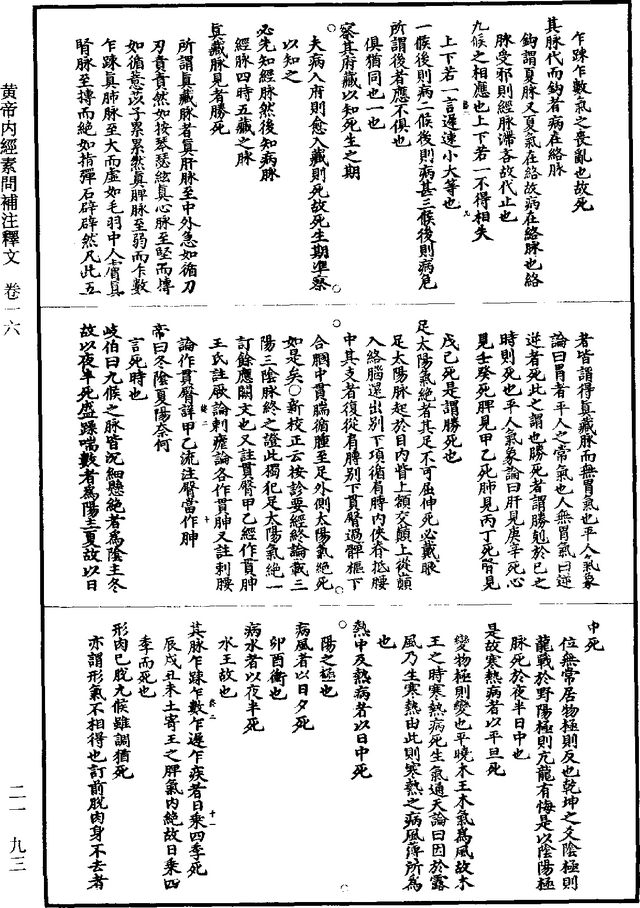 黃帝内經素問補注釋文 卷一六
二一 九三
乍踈乍數氣之喪亂也故死
其脉代而鈎者病在絡脉
鈎謂夏脉又夏氣在絡故病在絡脉也絡
脉受邪則經脉滯吝故代止也
九候之相應也上下若一不得相失
上下若一言遲速小大等也
一候後則病二候後則病甚三候後則病危
所謂後者應不俱也
俱猶同也一也
察其府藏以知死生之期
夫病入府則愈入藏則死故死生期準察
以知之
必先知經脉然後知病脉
經脉四時五藏之脉
真藏脉見者勝死
所謂真藏脉者真肝脉至中外急如循刀
刃責責然如按琴瑟絃真心脉至堅而摶
如循薏苡子累累然真脾脉至弱而乍數
乍踈真肺脉至大而虛如毛羽中人膚真
腎脉至摶而絕如指彈石辟辟然凡此五
者皆謂得真藏脉而無胃氣也平人氣象
論曰胃者平人之常氣也人無胃氣曰逆
逆者死此之謂也勝死者謂勝剋於已之
時則死也平人氣象論曰肝見庚辛死心
見壬癸死脾見甲乙死肺見丙丁死腎見
戊己死是謂勝死也
足太陽氣絕者其足不可屈伸死必戴眼
足太陽脉起於目内眥上額交顛上從顛
入絡腦還出别下項循肩膊内俠脊抵腰
中其支者復從肩膊别下貫臀過髀樞下
合膕中貫腨循踵至足外側太陽氣絕死
如是矣○新校正云按診要經終論載三
陽三陰脉終之證此獨犯足太陽氣絕一
訂餘應闕文也又註貫臀甲乙經作貫胂
王氏註厥論刺瘧論各作貫胂又註刺腰
論作貫臀詳甲乙流注臀當作胂
帝曰冬陰夏陽奈何
言死時也
岐伯曰九候之脉皆沉細懸絕者為陰主冬
故以夜半死盛躁喘數者為陽主夏故以日
中死
位無常居物極則反也乾坤之爻陰極則
龍戰於野陽極則亢龍有悔是以陰陽極
脉死於夜半日中也
是故寒熱病者以平旦死
變物極則變也平曉木王木氣為風故木
王之時寒熱病死生氣通天論曰因於露
風乃生寒熱由此則寒熱之病風薄所為
也
熱中及熱病者以日中死
陽之極也
病風者以日夕死
卯酉衝也
病水者以夜半死
水王故也
其脉乍踈乍數乍遲乍疾者日乘四季死
辰戌丑未土寄王之脾氣内絕故日乘四
季而死也
形肉已脫九候雖調猶死
亦謂形氣不相得也訂前脫肉身不去者